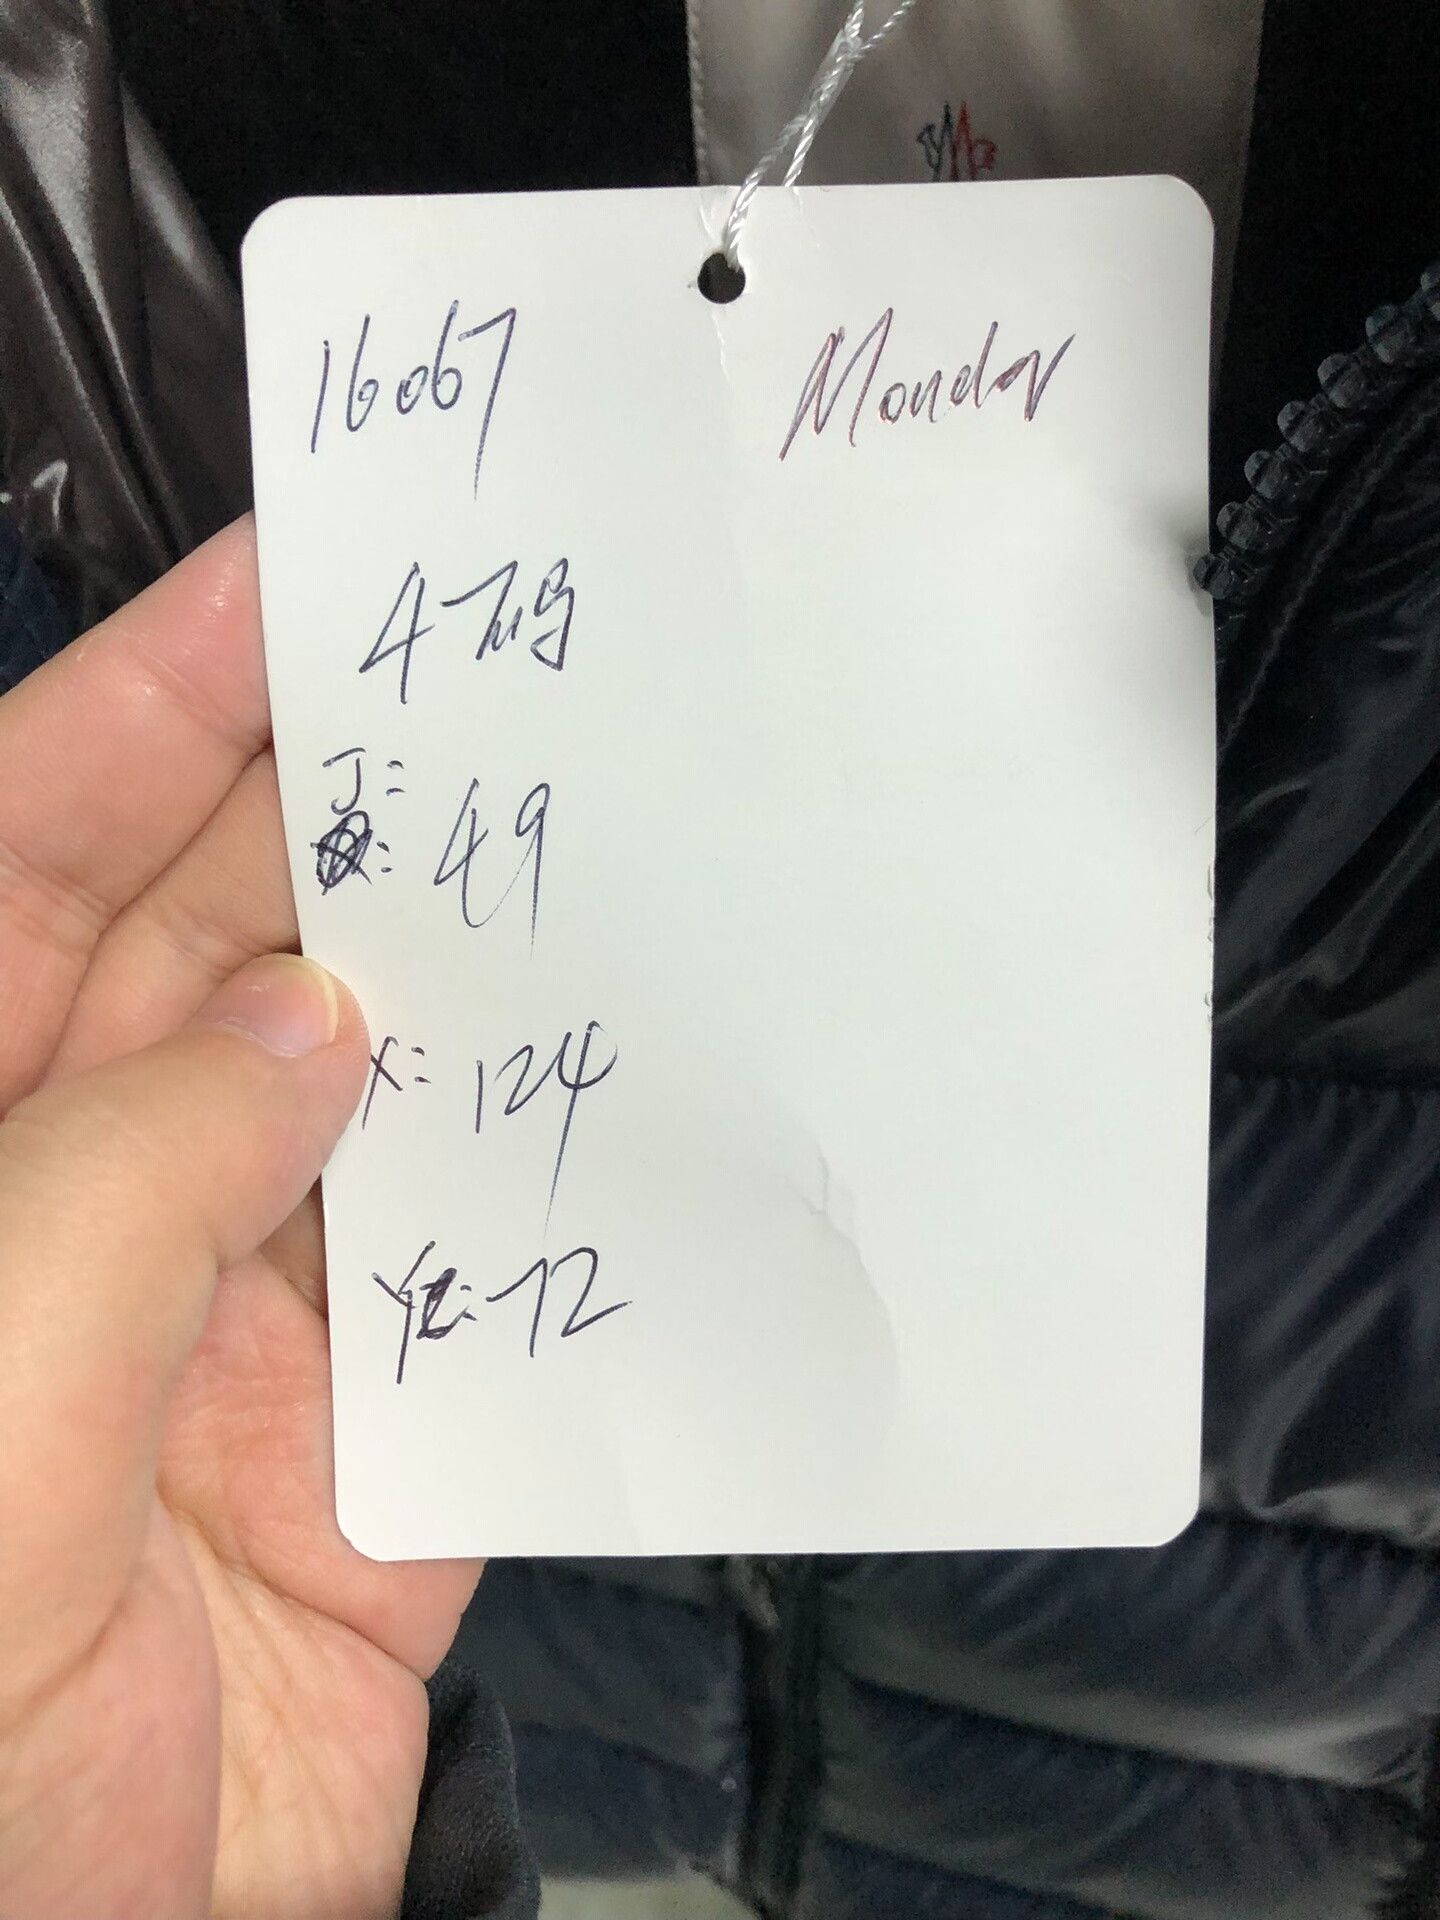 16067
Monday
4码
J:
49
X: 124
Y: 72